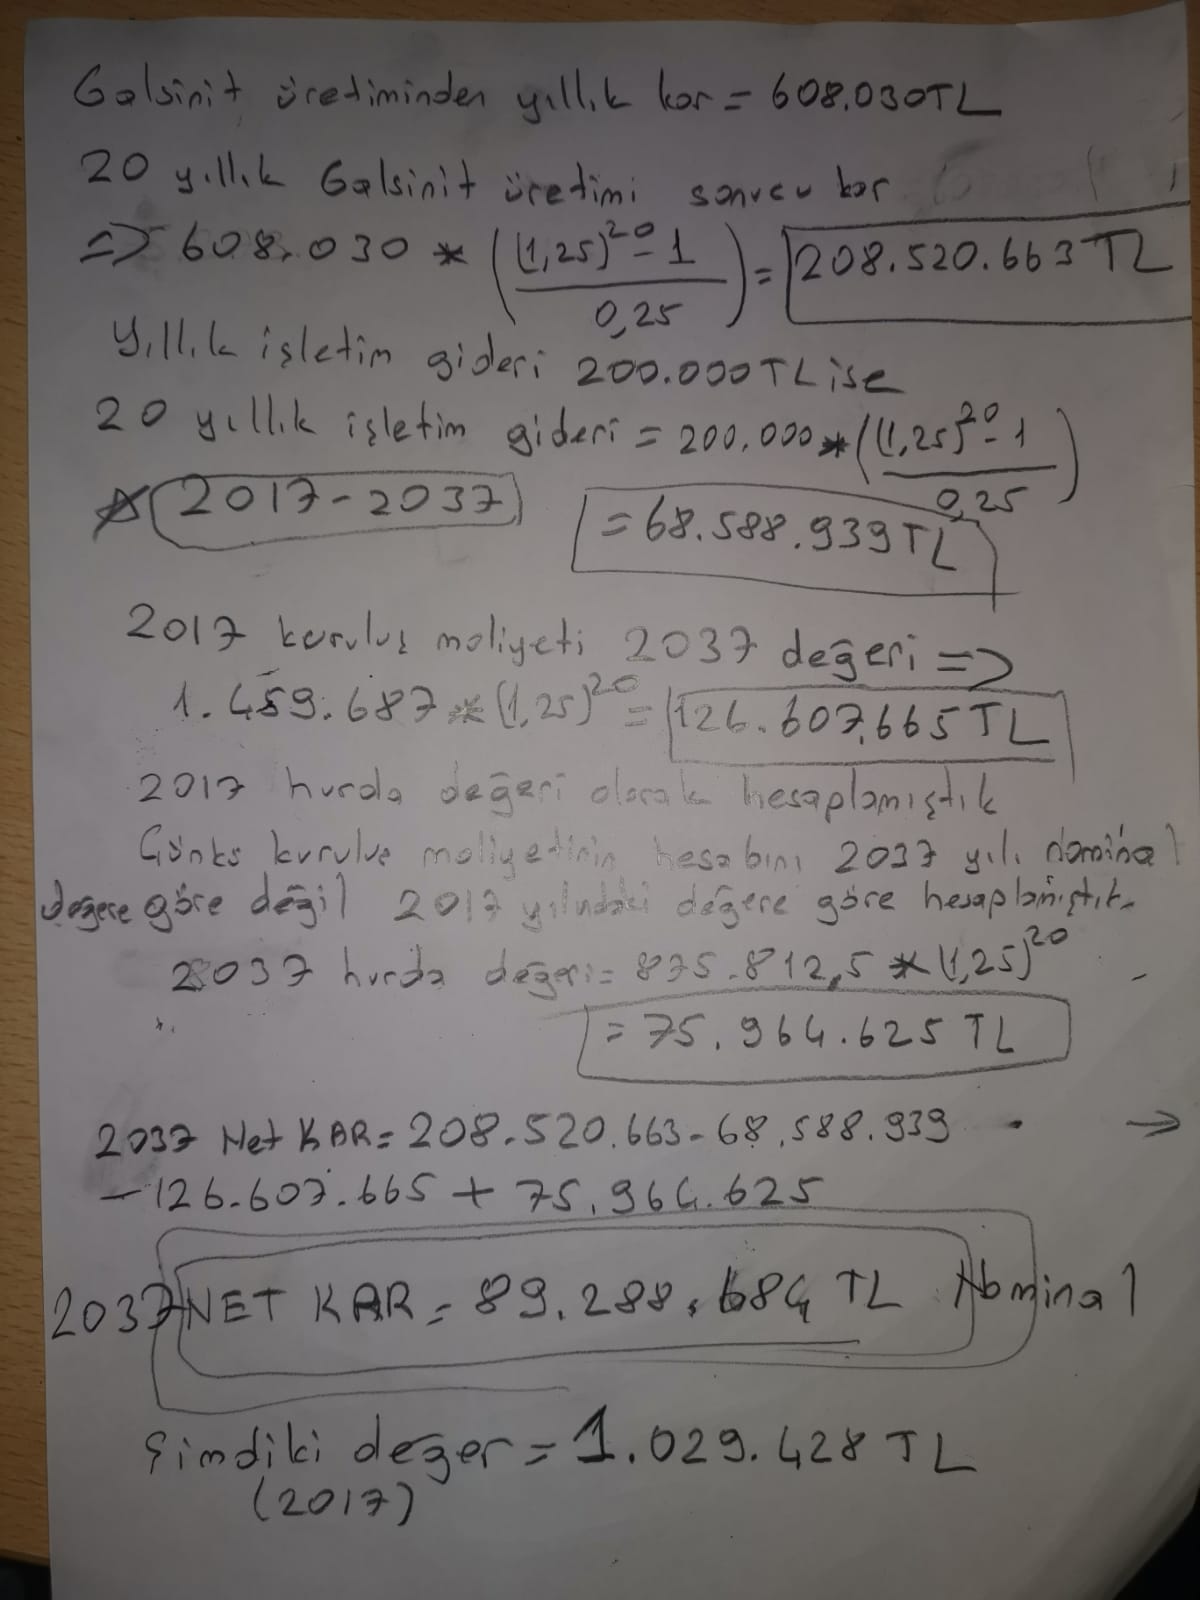 Galsinit üretiminden yıllık kar = 608.030TL
20 yıllık Galsinit üretimi sonucu kar
=> 608.030 * ((1,25)^20 - 1 / 0,25) = 208.520.663 TL
Yıllık işletim gideri 200.000TL ise
20 yıllık işletim gideri = 200.000 * ((1,25)^20 - 1 / 0,25)
2017-2037 = 68.588.939 TL
2017 kuruluş maliyeti 2037 değeri =>
1.459.687 * (1,25)^20 = 126.607,665 TL
2017 hurda değeri olarak hesaplamıştık
Günkü kuruluş maliyetinin hesabını 2037 yılı nominal
değere göre değil 2017 yılındaki değere göre hesaplamıştık.
2037 hurda değeri = 875.812,5 * (1,25)^20
= 75.964.625 TL
2037 Net KAR = 208.520.663 - 68.588.939 →
- 126.607.665 + 75.964.625
2037 NET KAR = 89.288.684 TL Nominal
Şimdiki değer = 1.029.428 TL
(2017)